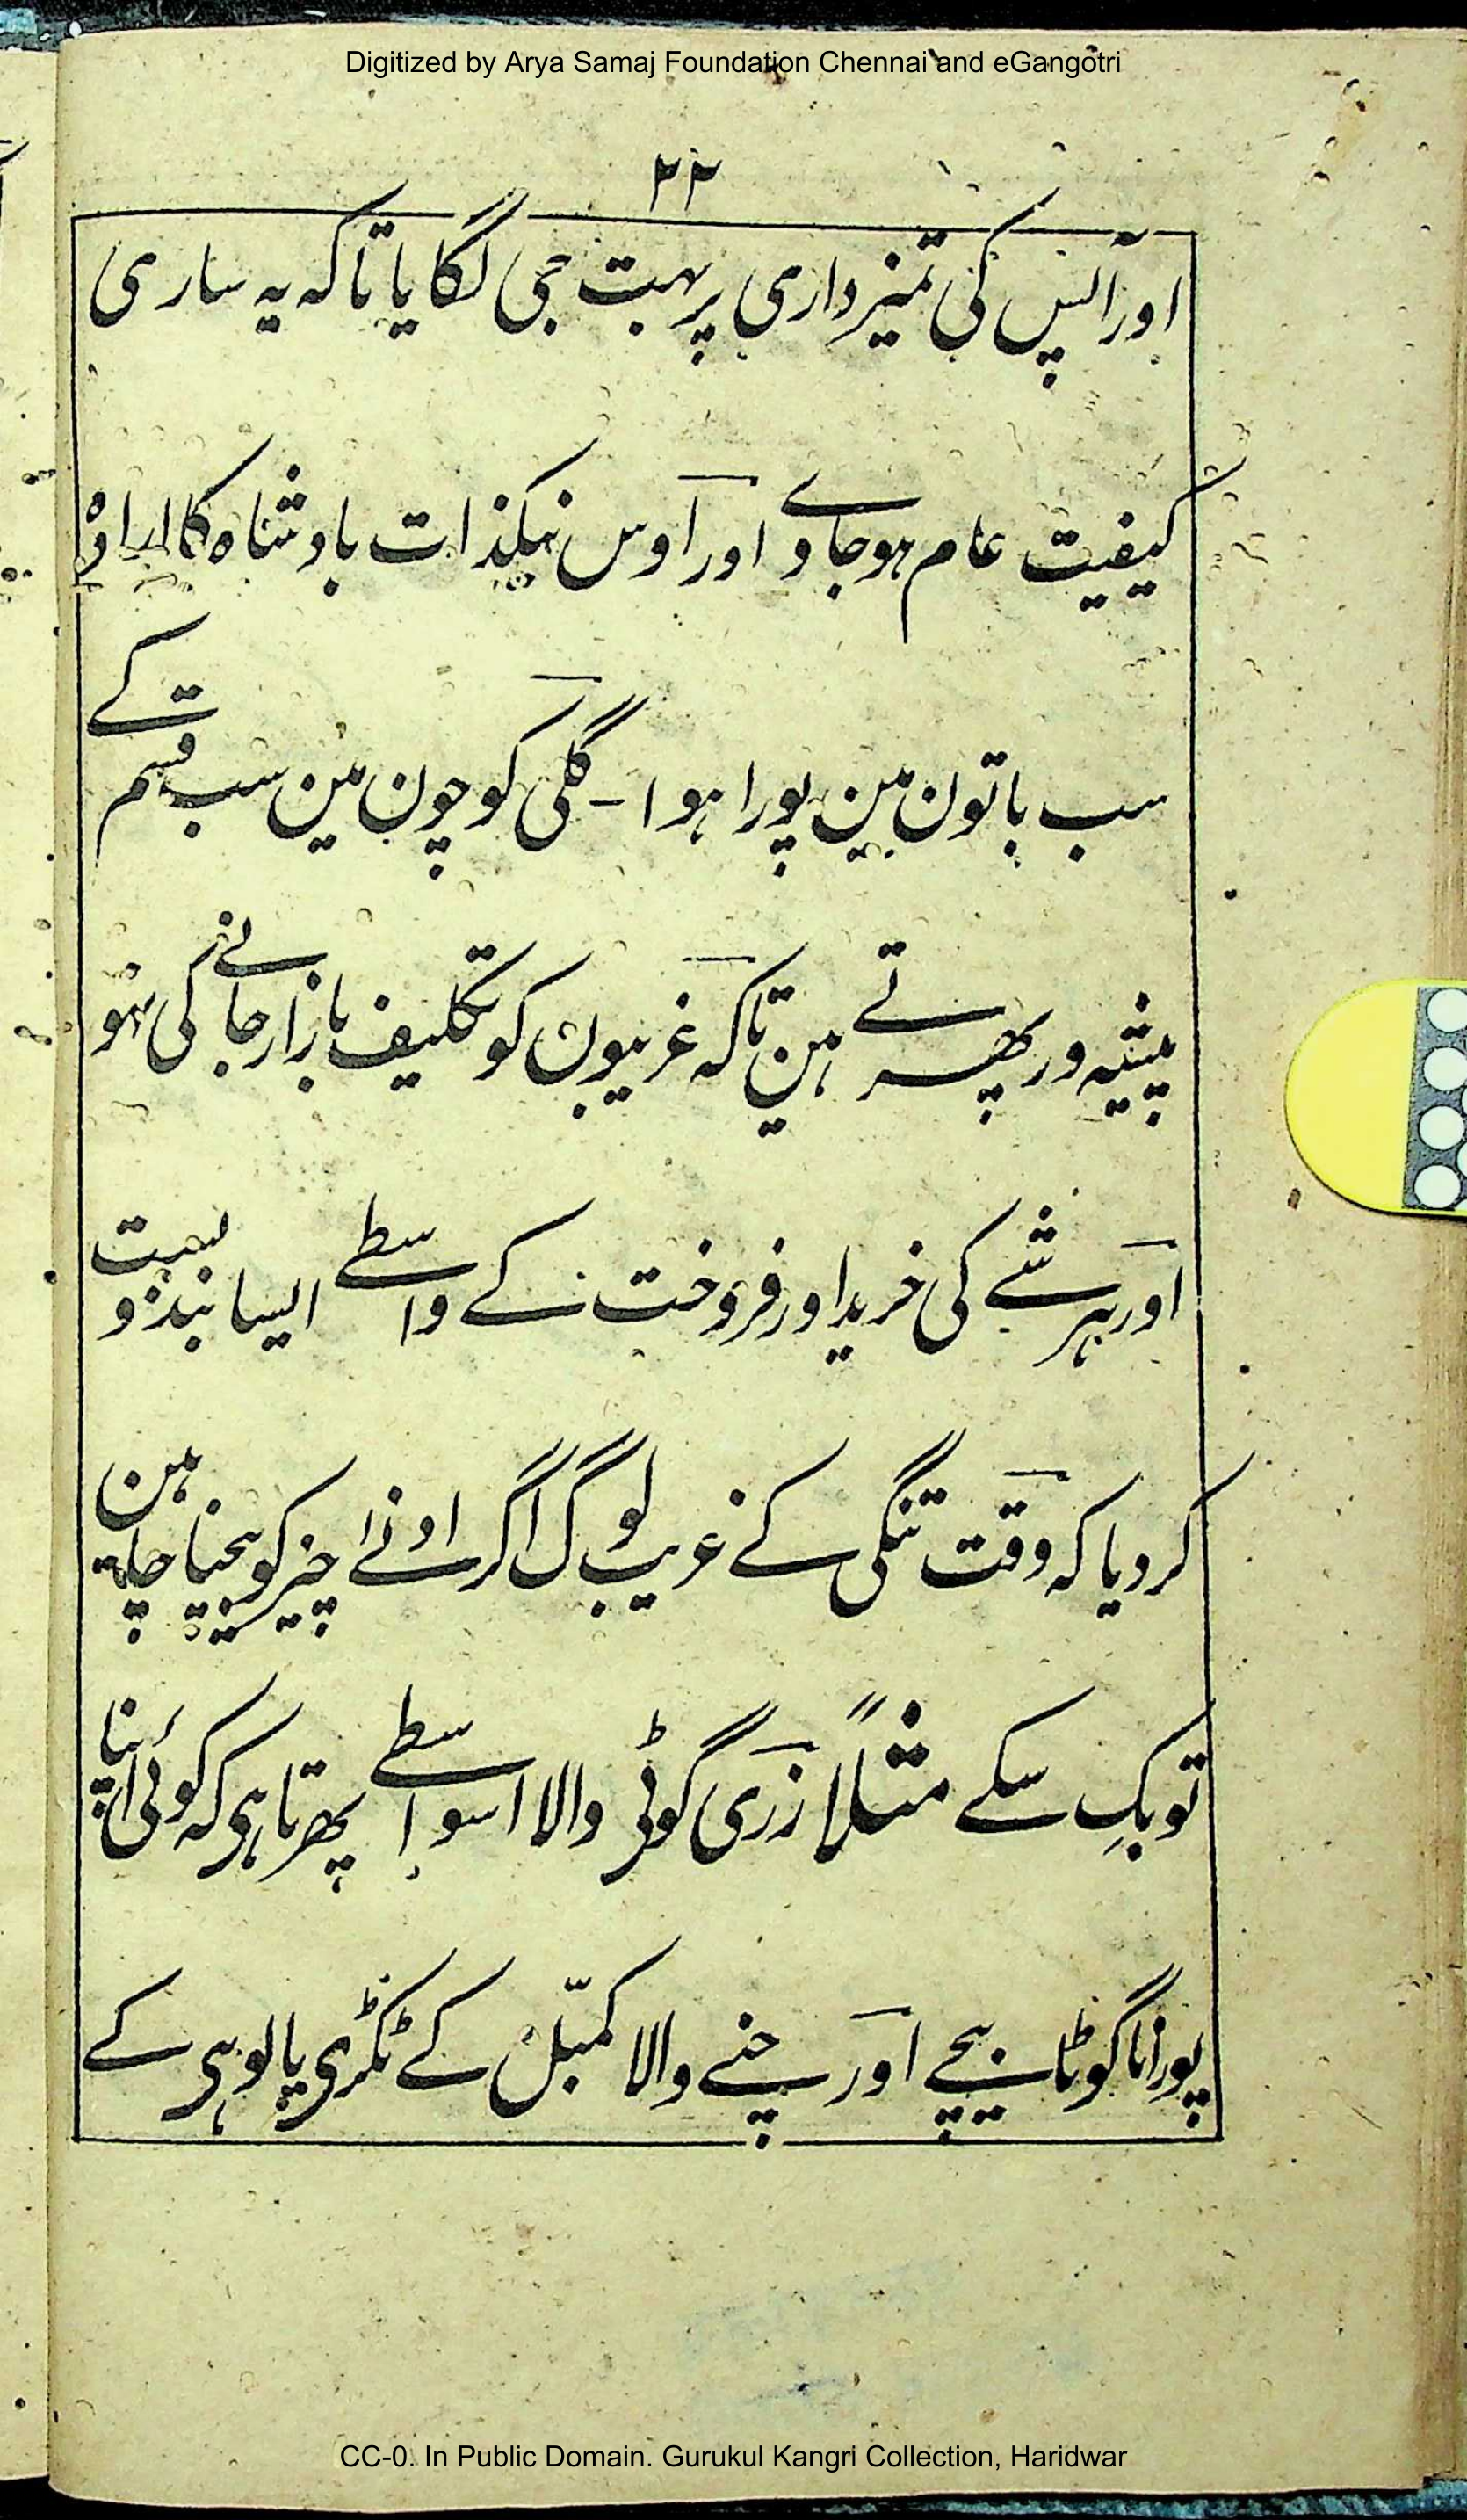 Digitized by Arya Samaj Foundation Chennai and eGangotri
۲۲
اور آپس کی تمیزداری پر بہت جی لگایا تاکہ یہ ساری
کیفیت عام ہوجاوے اور اوس نیکذات بادشاہ کا ارادہ
سب باتون مین پورا ہوا - گلی کوچون مین سب قسم کے
پیشیہ ور پھرتے ہین تاکہ غریبون کو تکلیف بازار جانے کی نہو
اور ہر شے کی خرید اور فروخت کے واسطے ایسا بندوبست
کردیا کہ وقت تنگی کے غریب لوگ اگر ادنےٰ چیز کو بیچنا چاہتے ہین
تو بک سکے مثلًا زری گوٹی والا اسواسطے پھرتا ہی کہ کوئی اپنا
پورانا گوٹا بیچے اور چنے والا کمبّل کے ٹکڑی یا لوہی کے
CC-0. In Public Domain. Gurukul Kangri Collection, Haridwar